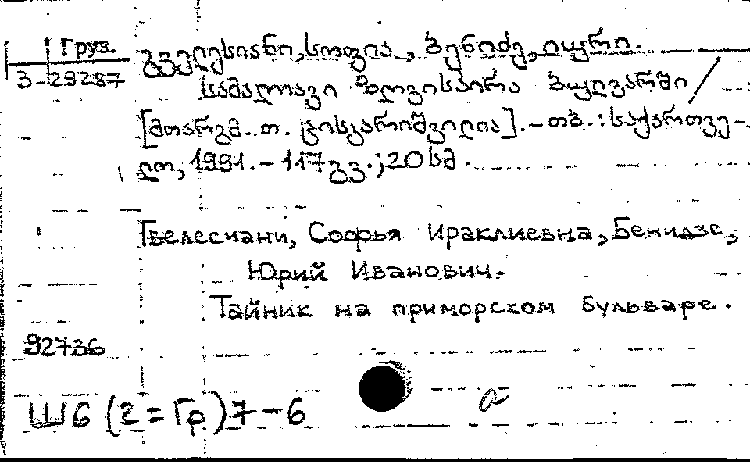 Груз.
3-29287
გველესიანი, სოფია, ბენიძე, იური.
სამალავი ზღვისპირა ბულვარში /
[მთარგმ. თ. კისკარიშვილია]. - თბ. : საქართვე-
ლო, 1991. - 117 გვ.; 20 სმ.
Гвелесиани, Софья Ираклиевна, Бенидзе,
Юрий Иванович.
Тайник на приморском бульваре.
92736
Ш6(2=Гр)7-6
а